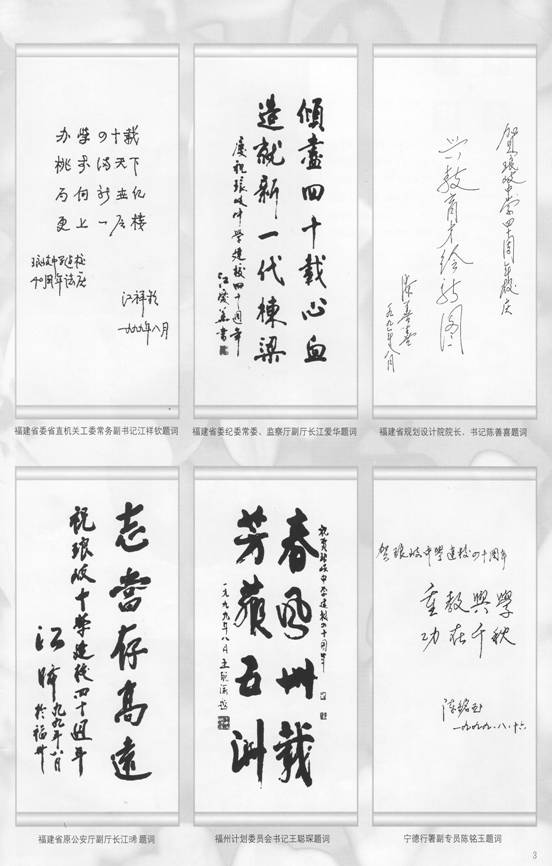 办学四十载
桃李满天下
面向新世纪
更上一层楼
琅岐中学建校
40周年志庆
江祥钦
一九九九年八月
福建省委省直机关工委常务副书记江祥钦题词
傾盡四十載心血
造就新一代棟梁
慶祝琅岐中學建校四十周年
江愛華書
福建省委纪委常委、监察厅副厅长江爱华题词
贺琅岐中学四十周年校庆
兴教育才绘新图
陈善喜
一九九九年八月
福建省规划设计院院长、书记陈善喜题词
志當存高遠
祝琅岐中學建校四十週年
江晞
九九年八月
於福州
福建省原公安厅副厅长江晞题词
春風卌載
芳蘋五洲
祝賀琅岐中学建校四十周年
一九九九年八月王聪琛題
福州计划委员会书记王聪琛题词
贺琅岐中學建校四十周年
重教興學
功在千秋
陈铭玉
一九九九·八·十六
宁德行署副专员陈铭玉题词
3